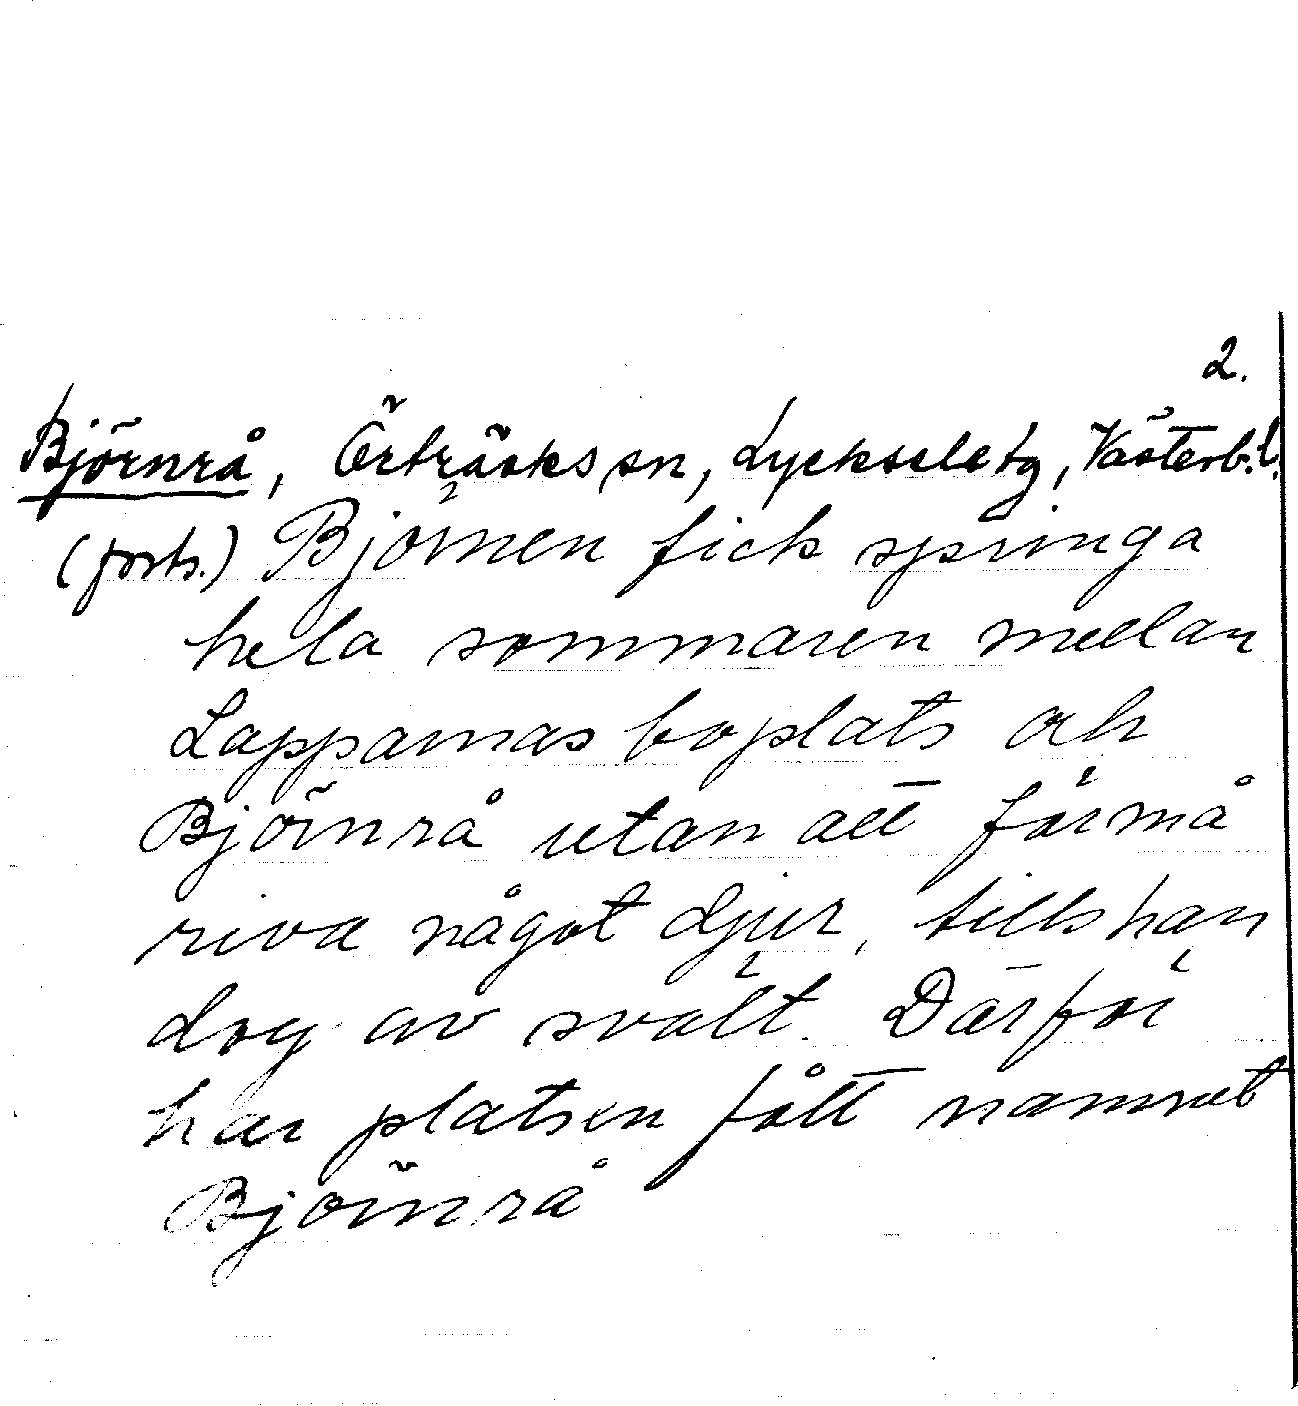 2.
Björnrå, Örträsks sn, Lycksele tg, Västerb. l.
(forts.) Björnen fick springa
hela sommaren mellan
Lapparnas boplats och
Björnrå utan att förmå
riva något djur, tills han
dog av svält. Därför
har platsen fått namnet
Björnrå